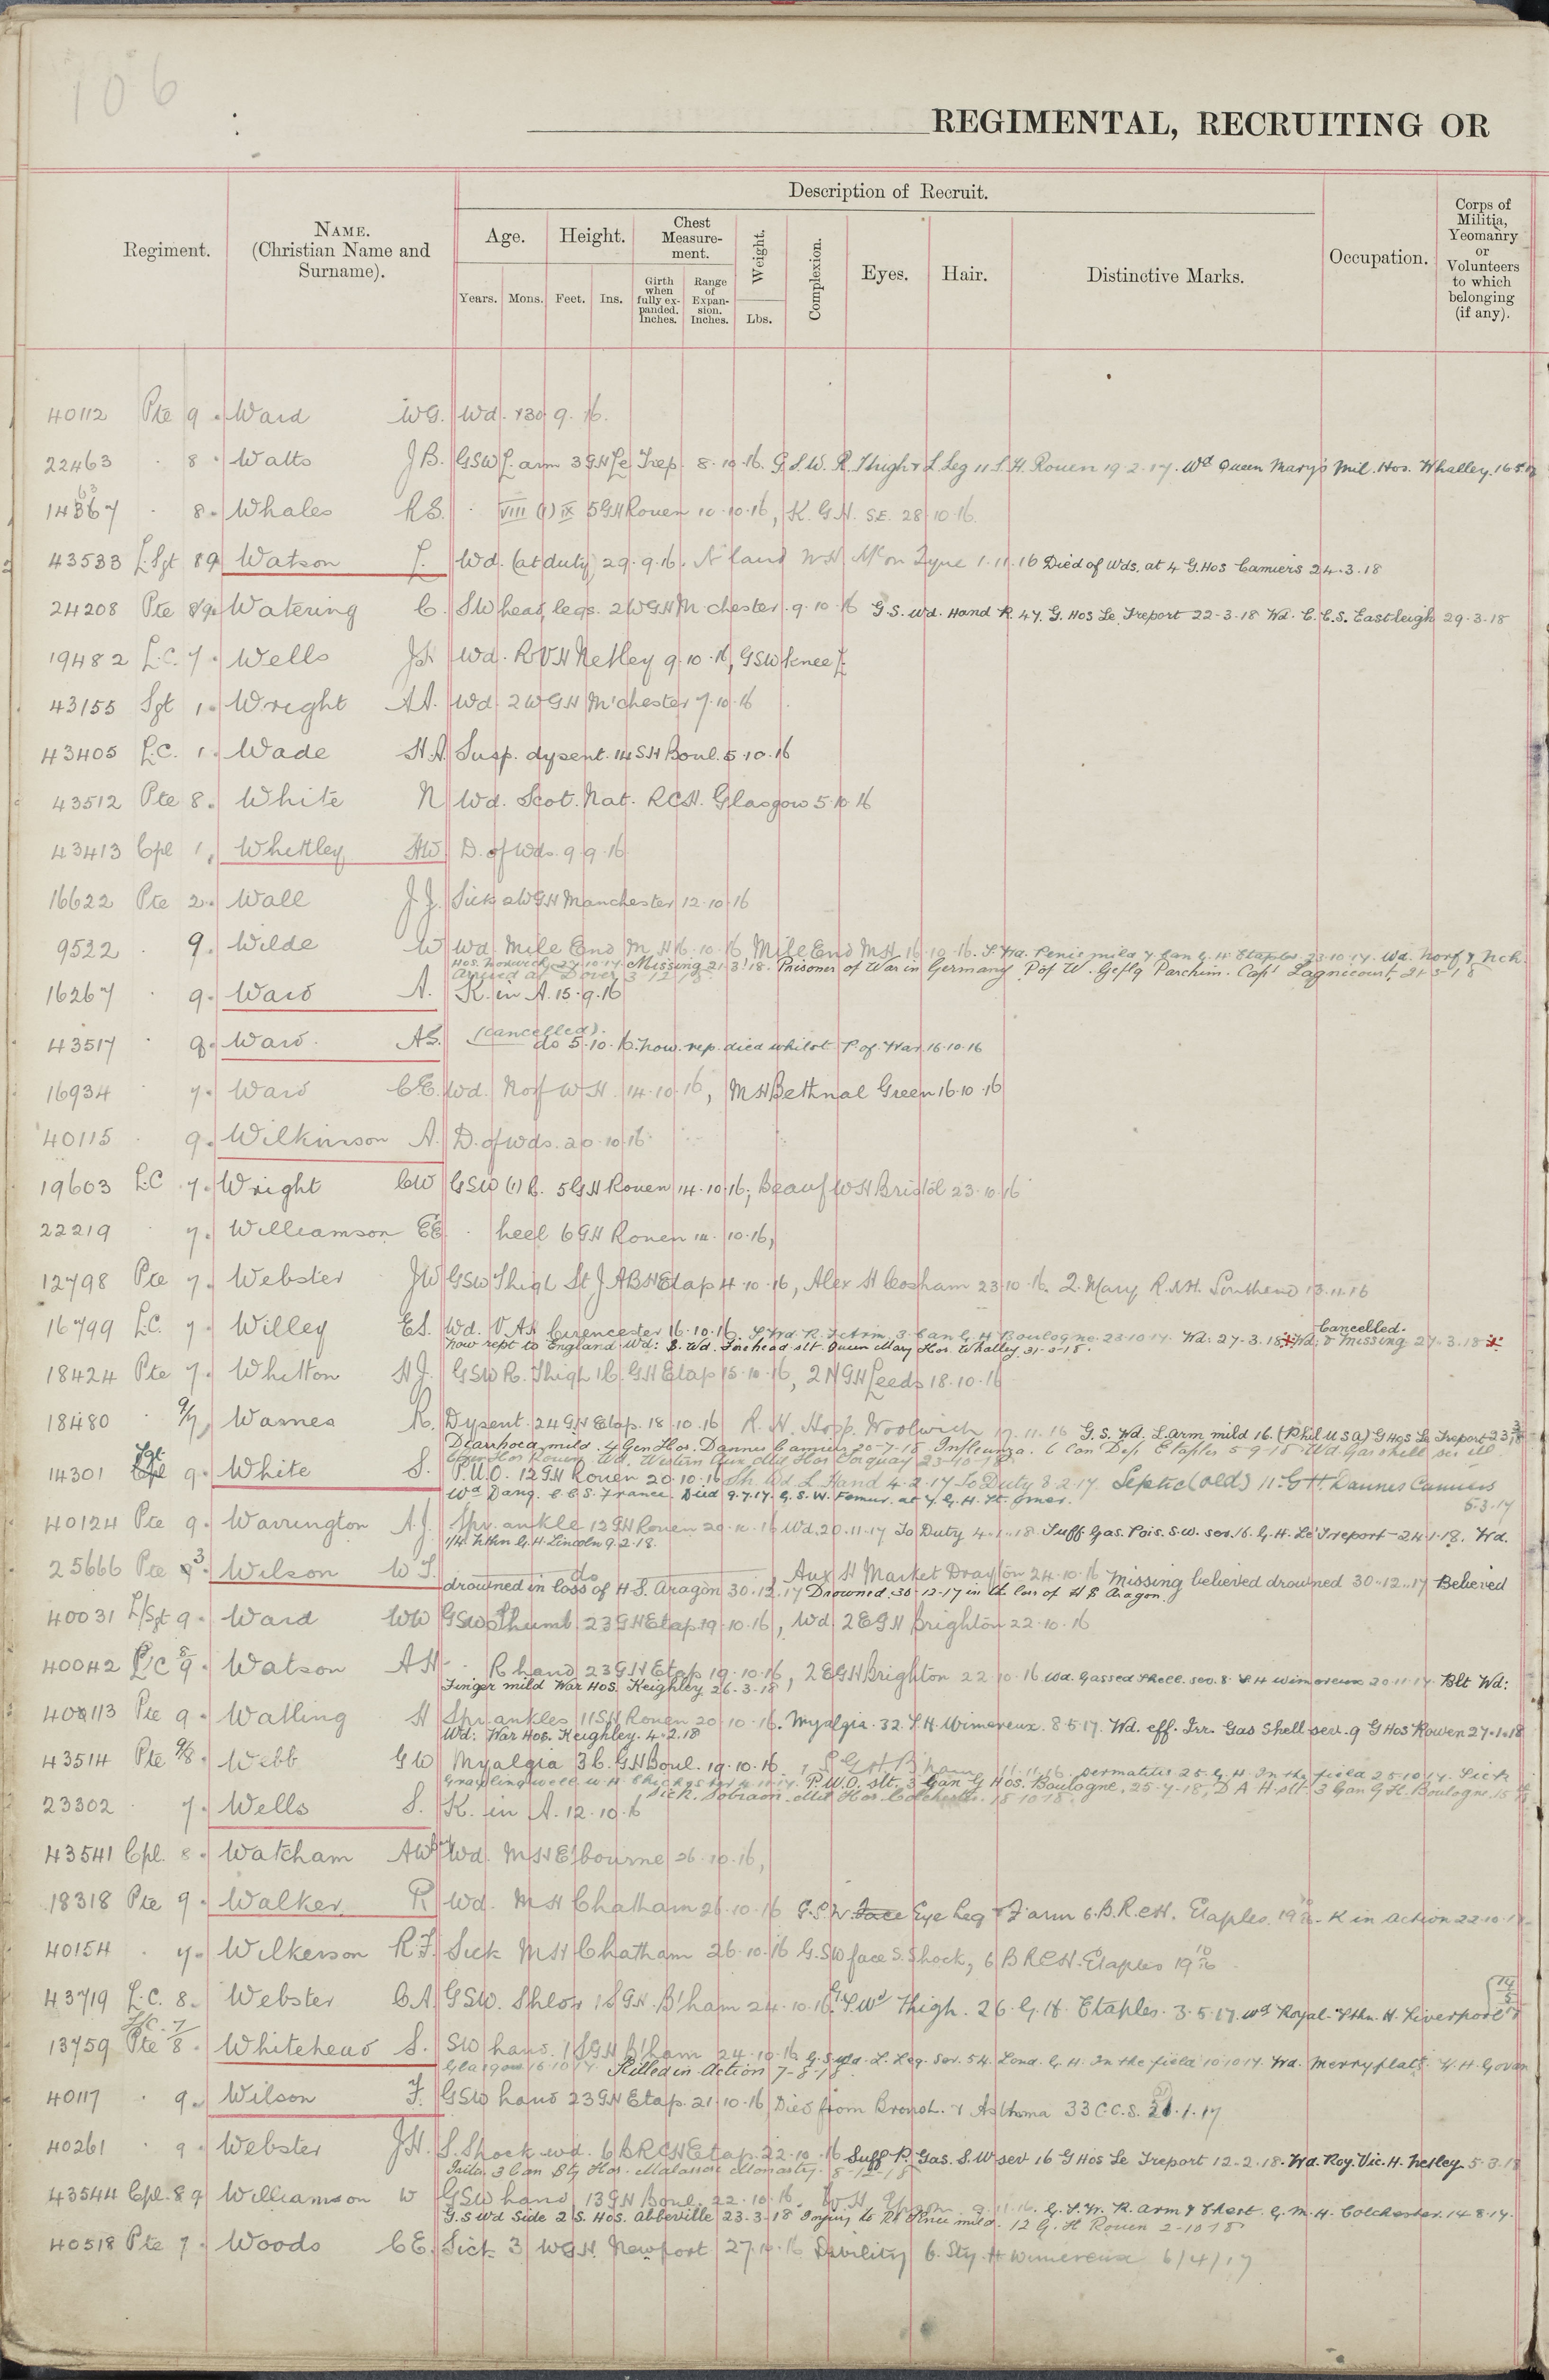 106
REGIMENTAL, RECRUITING OR
Description of Recruit.
Regiment.
NAME.
(Christian Name and
Surname).
Age.
Height.
Chest
Measure-
ment.
Weight.
Complexion.
Eyes.
Hair.
Distinctive Marks.
Occupation.
Corps of
Militia,
Yeomanry
or
Volunteers
to which
belonging
(if any).
Years.
Mons.
Feet.
Ins.
Girth
when
fully ex-
panded.
Inches.
Range
of
Expan-
sion.
Inches.
Lbs.
40112 Pte 9 Ward WG. Wd. 30 9.16.
22463 8 Watts JB. GSW L. arm 3GH Le Trep. 8.10.16. G.S.W. R. Thigh & L Leg 11 S.H. Rouen 19.2.17. Wd Queen Mary's Mil. Hos. Whalley.
14367 8. Whales RS. VIII (1) IX 5GH Rouen 10.10.16, K.G.H. S.E. 28.10.16
43533 L.Sgt 89 Watson Wd. (at duty) 29.9.16. N'land W.H. 1.11.16 Died of Wds. at 4 G.Hos Camiers 24.3.18
24208 Pte 8/9 Watering C. SW head, legs. 2WGH M'chester. 9.10.16 G.S.Wd. Hand R. 47. G. Hos Le Treport 22-3-18 Wd. C.C.S. Eastleigh 29.3.18
19482 L.C. 7. Wells JH Wd. RVH Netley 9.10.16, GSW knee L.
43155 Sgt 1. Wright AA. Wd. 2WGH M'chester 7.10.16
43405 L.C. 1. Wade H.A. Susp. dysent. 14SH Boul. 5.10.16
43512 Pte 8. White N Wd. Scot. Nat. RCH. Glasgow 5.10.16
43413 Cpl 1. Whittley HW. D. of Wds. 9.9.16
16622 Pte 2. Wall J.J. Sick 2WGH Manchester 12.10.16
9522 9. Wilde W Wd. Mile End M.H 16.10.16 Mile End MH. 16.10.16. Wd. Norf & Nch.
Hos. Norwich 27.10.17 Missing 21.3.18. Prisoner of War in Germany P of W. Gefg Parchim. Capt Lagnicourt. 21-3-18
arrived at Dover 3 12 18
16267 9. Ward A. K. in A. 15.9.16
43517 8. Ward. AS. (cancelled).
do 5.10.16. now rep. died whilst P. of War 16.10.16
16934 7. Ward C.E. Wd. Norf WH. 14.10.16, MH Bethnal Green 16.10.16
40115 9. Wilkinson A. D. of wds. 20.10.16.
19603 LC 7. Wright CW GSW (1) B. 5GH Rouen 14.10.16; Beauf WH Bristol 23.10.16
22219 7. Williamson EE heel 6GH Rouen 14.10.16,
12798 Pte 7. Webster JW GSW Thigh St J ABH Etap 4.10.16, Alex H Cosham 23.10.16. Q. Mary R.N.H. Southend 13.11.16
16799 LC. 7. Willey ES. Wd. VAH Cirencester 16.10.16. 3 Can G H Boulogne 23.10.17. Wd: 27-3.18 Wd: & Missing 27-3.18
cancelled.
Now rept to England Wd: S. Wd. Forehead slt. Queen Mary Hos. Whalley 31-3-18.
18424 Pte 7. Whitton H.J. GSW R. Thigh 1C. GH Etap 15.10.16, 2NGH Leeds 18.10.16
18480 9/7 Warnes R. Dysent. 24GH Etap. 18.10.16 R.H. Hosp. Woolwich 17.11.16 G.S. Wd. L.arm mild 16. (Phil U S A) G Hos Le Treport 23
Diarrhoea mild. 4 Gen Hos. Dannes Camiers 20-7-18 Influenza. 6 Con Dep. Etaples 5-9-18 Wd. Gas shell
14301 Sgt Cpl 9. White S. P.U.O. 12GH Rouen 20.10.16 Sh. Wd L Hand 4.2.17 To Duty 8.2.17 Septic (old) 11 G.H. Dannes Camiers
5.3.17
Wd Dang. C.C.S. France. Died 9.7.17. G.S.W. Femur. at 7. G.H. St. Omer.
40124 Pte 9. Warrington A.J. Spr. ankle 12GH Rouen 20.10.16 Wd. 20.11.17 To Duty 4.1.18 Suff Gas. Pois. S.W. sev. 16. G.H. Le Treport 24.1.18. Wd.
1/4 Nthn G.H. Lincoln 9.2.18.
25666 Pte 3 Wilson W J. do, Aux H Market Drayton 24.10.16 Missing believed drowned 30-12-17 Believed
drowned in loss of H.S. Aragon 30.12.17 Drowned 30-12-17 in the loss of H S Aragon.
40031 L/Sgt 9. Ward WW GSW Thumb 23GH Etap 19.10.16, Wd 2EGH Brighton 22.10.16
40042 LC 8/9. Watson AH R hand 23GH Etap 19.10.16, 2EGH Brighton 22.10.16 Wd. Gassed Shell. sev. 8 S H Wimereux 20.11.17. Blt Wd:
Finger mild War Hos. Keighley 26-3-18
400113 Pte 9. Watling H Spr ankles 11SH Rouen 20.10.16. Myalgia. 32. S.H. Wimereux. 8 5 17. Wd. eff. Irr. Gas Shell sev. 9 G Hos Rouen 27.1.18
Wd: War Hos. Keighley. 4.2.18
43514 Pte 9/8. Webb GW Myalgia 3C. GH Boul. 19.10.16. 11.11.16. Dermatitis 25 G.H. In the field 25.10.17. Sick
Graylingwell W.H. Chichester P.U.O. slt. 3 Can G Hos. Boulogne. 25-7-18, D A H slt. 3 Can G H. Boulogne. 15
Sick. Sobraon Mil Hos. Colchester. 18 10 18.
23302 7. Wells S. K. in A. 12.10.16
43541 Cpl. 8. Watcham AW Wd. MH E'bourne 26.10.16,
18318 Pte 9. Walker R Wd. MH Chatham 26.10.16 G.S.W. Face Eye Leg & F'arm 6.B.R.C.H. Etaples. 19. K in action 22.10.17
40154 7. Wilkerson R.F. Sick MH Chatham 26.10.16 G.SW face S. Shock, 6 BRCH. Etaples 19 10/16
43719 L.C. 8. Webster C.A. GSW. Shldr 1SGH. B'ham 24.10.16. G.S.Wd Thigh. 26. G.H. Etaples. 3.5.17. Wd Royal. Sthn. H. Liverpool
13759 Pte 7/8. Whitehead S. SW hand. 1SGH B'ham 24.10.16 G.S.Wd. L. Leg. Sev. 54. Lond. G.H. In the field 10 10 17. Wd. Merryflats W.H. Govan
Glasgow 16 10 17 Killed in Action 7-8-18
40117 9. Wilson F. GSW hand 23GH Etap. 21.10.16 Died from Bronch. & Asthma 33 C.C.S. 21.1.17
40261 9. Webster J.H. S. Shock wd. 6 BRCH Etap. 22.10.16 Suff P. Gas. S.W sev 16 G Hos Le Treport 12-2.18. Wd. Roy. Vic. H. Netley 5.3.18
43544 Cpl. 8 9 Williamson W GSW hand 13GH Boul. 22.10.16. G.S.W. R. arm & Chest. G.M.H. Colchester. 14.8.17.
G.S Wd Side 2 S. Hos. Abbeville 23-3-18 Injury to Rt Knee mild. 12 G. H Rouen 2-10 18
40518 Pte 7. Woods CE. Sick 3 WGH. Newport 27.10.16 Debility 6. Sty. H Wimereux 6/4/17